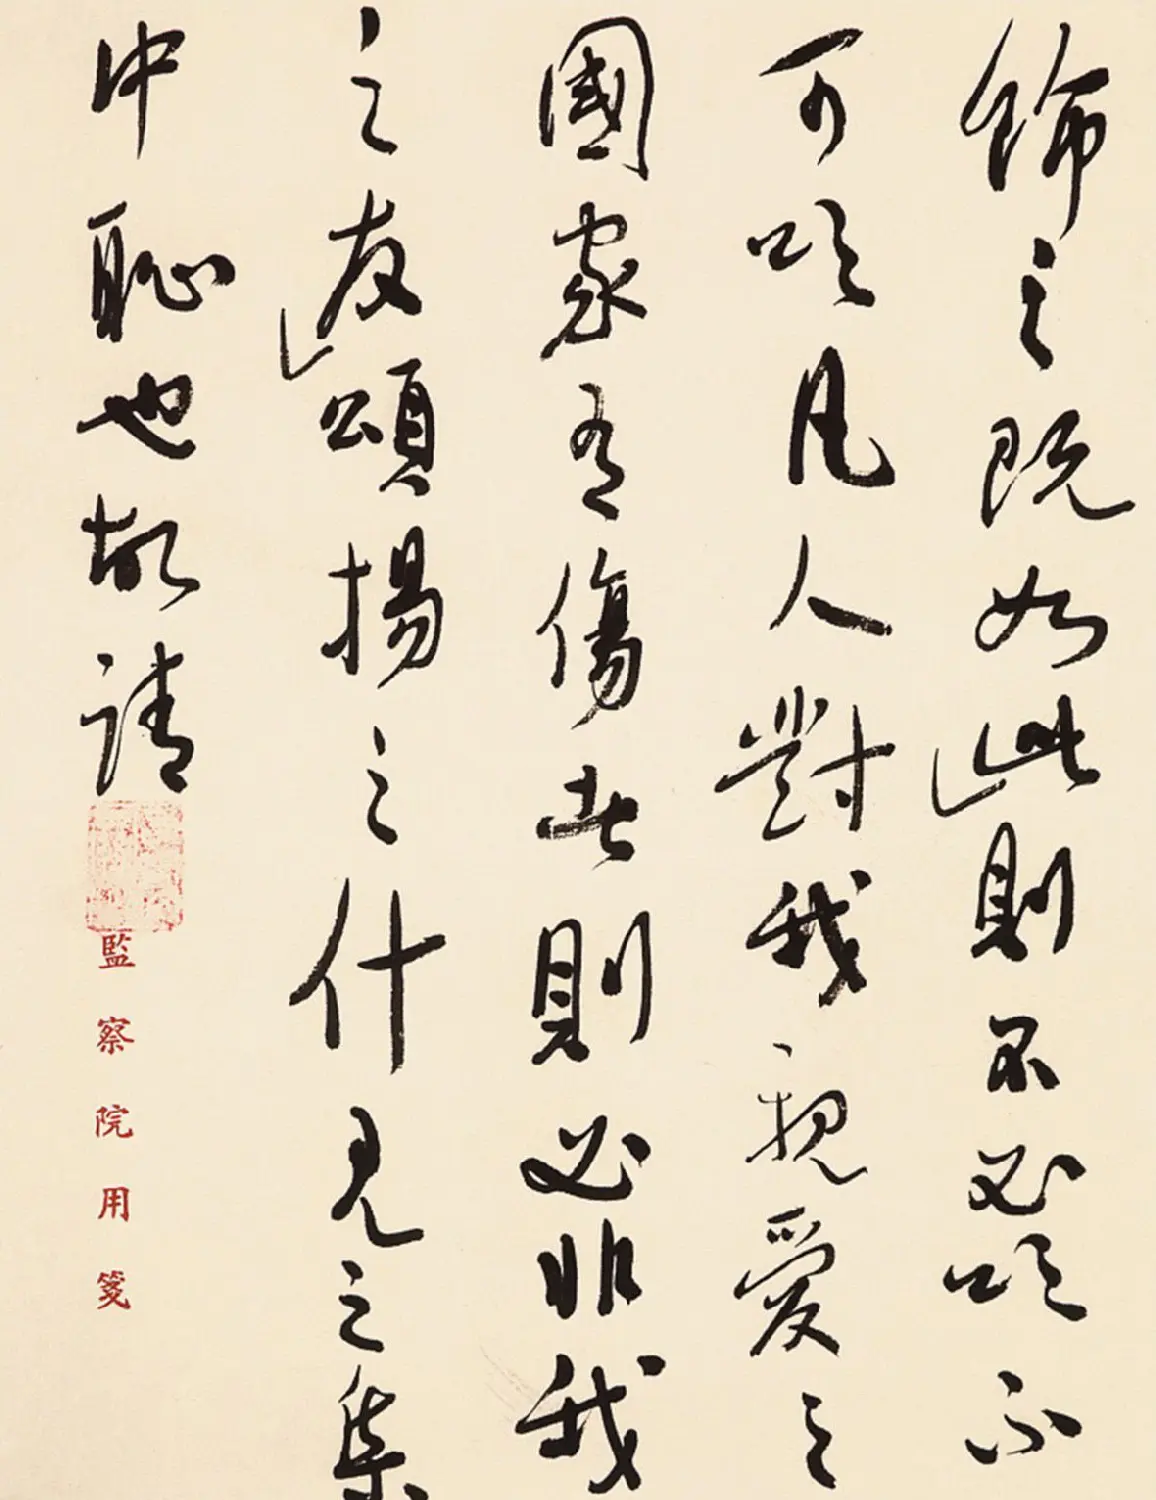 飾之既如此則不必吹不
可吹凡人對我親愛之
國家有傷者則必非我
之友頌揚之什見之集
中恥也故請
監察院用箋